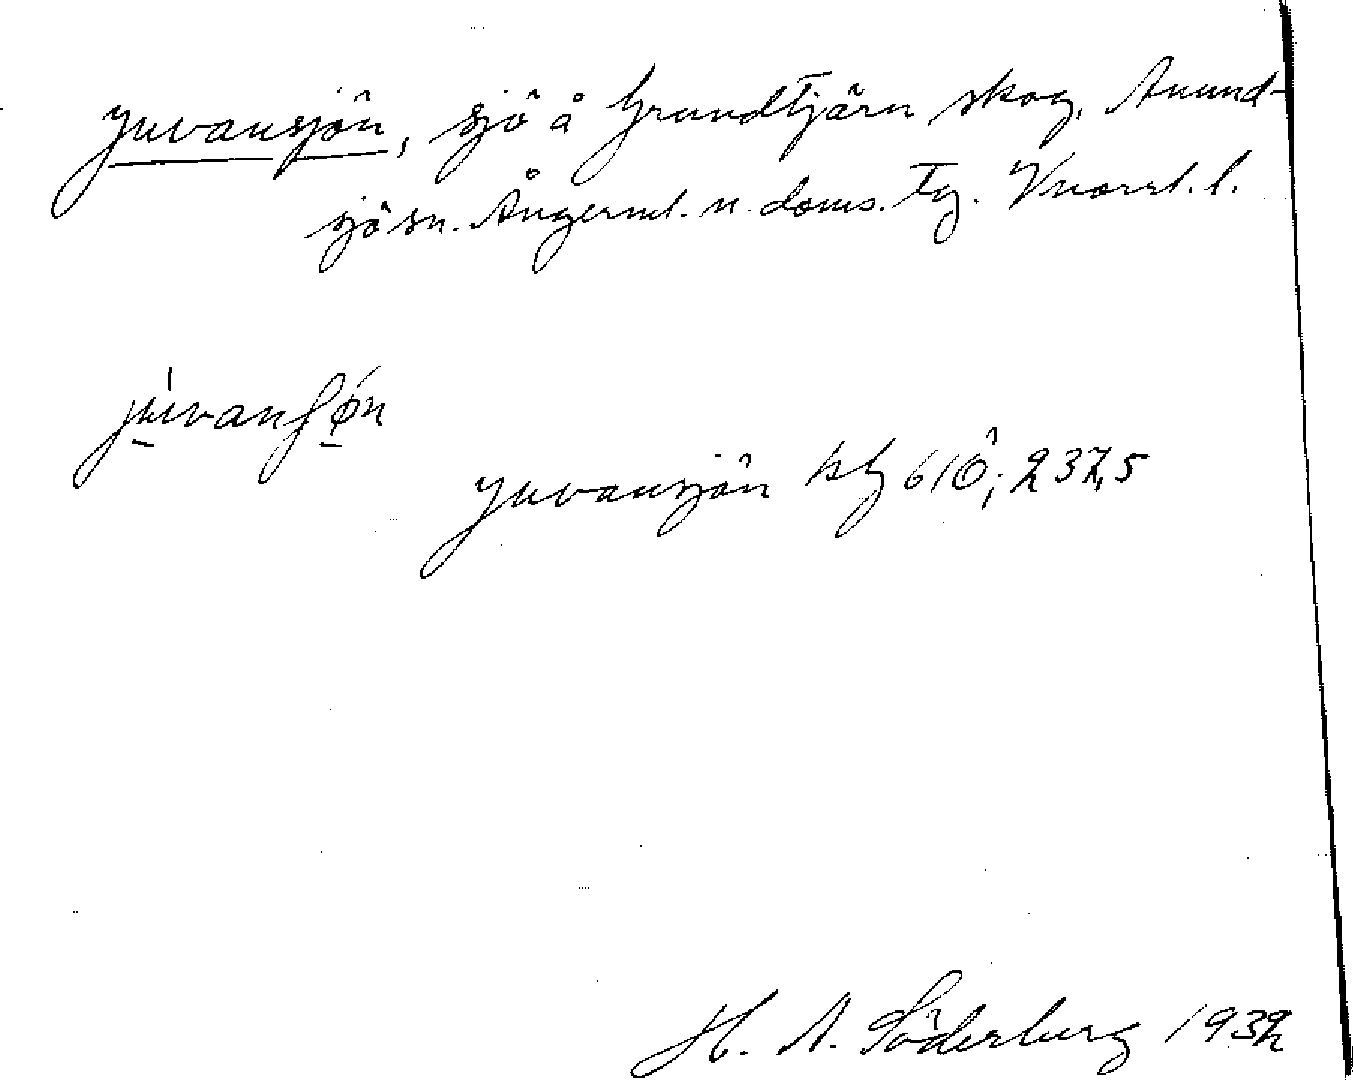 Juvansjön, sjö å Grundtjärn skog, Anund-
sjö sn. Ångerml. n. doms. tg. Vnorrl. l.
juvanʃøn
Juvansjön kbl 61Ö; 237,5
H. A. Söderberg 1932